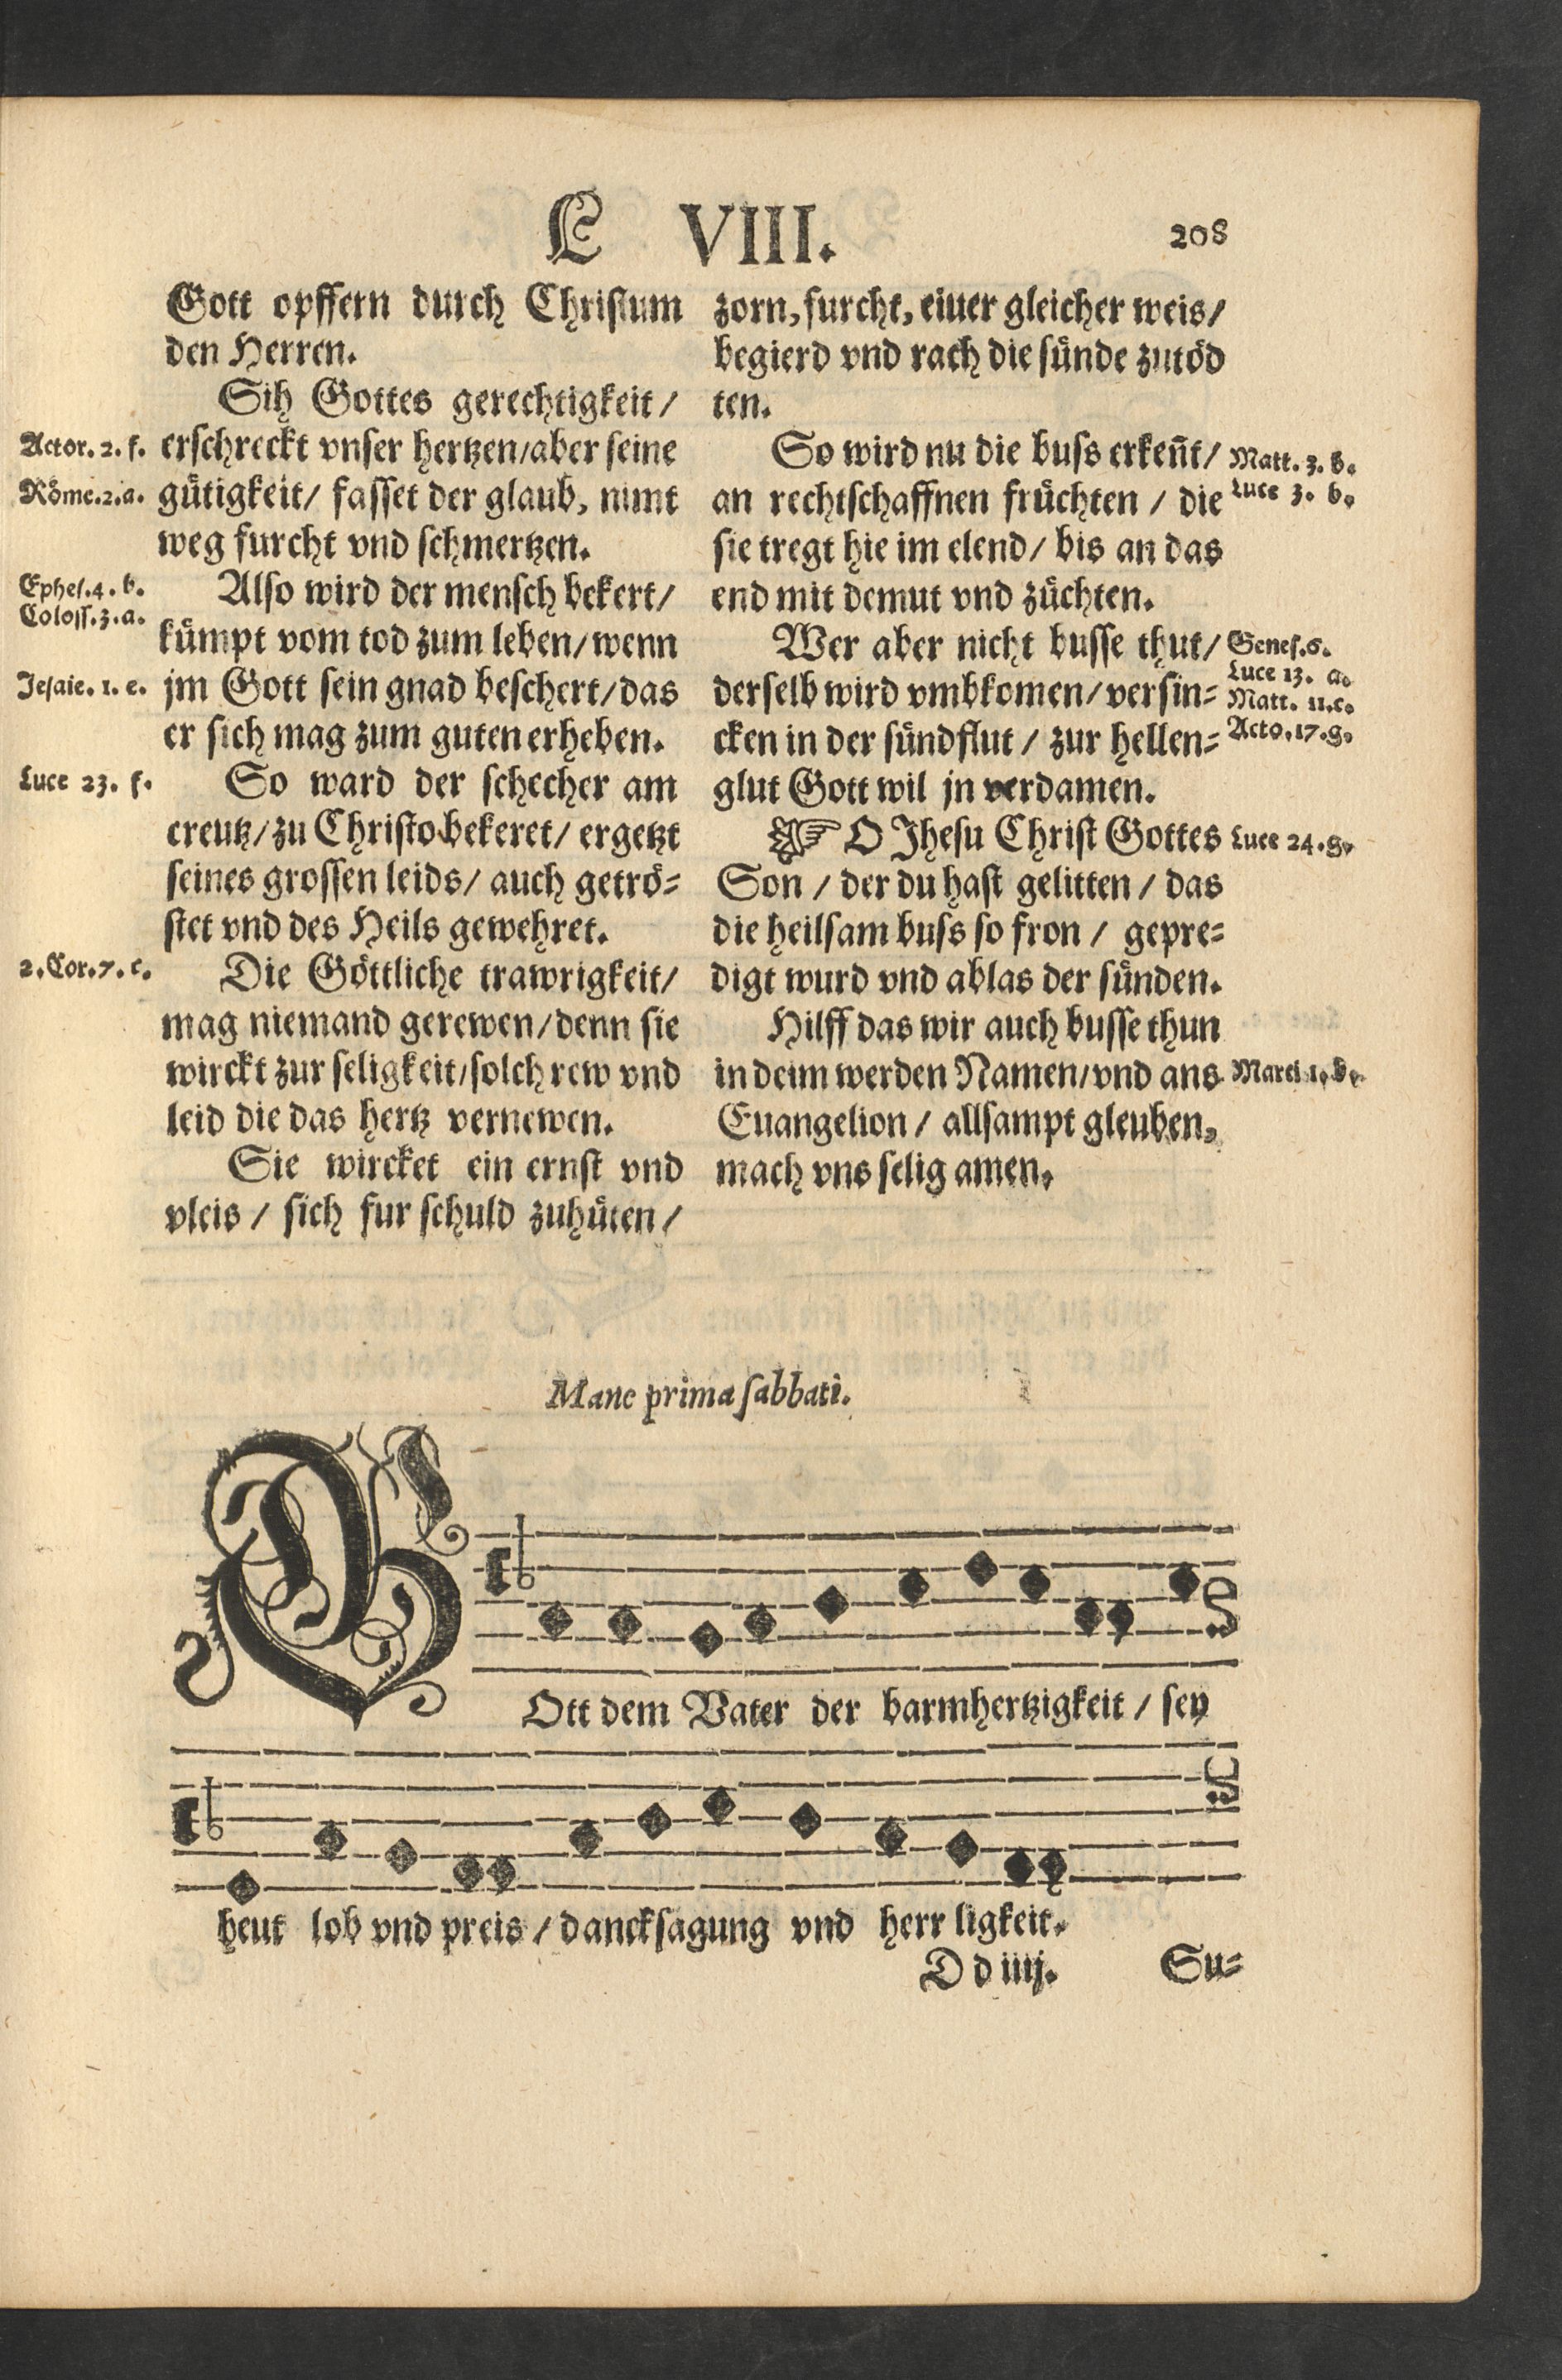 L VIII. 208
Gott opffern durch Christum
den Herren.
Sih Gottes gerechtigkeit/
Actor. 2. f. erschreckt vnser hertzen/aber seine
Röme.2.a. gütigkeit/ fasset der glaub, nimt
weg furcht vnd schmertzen.
Ephes.4. b. Also wird der mensch bekert/
Coloss.3.a.
kümpt vom tod zum leben/wenn
Jesaie. 1. e. jm Gott sein gnad beschert/das
er sich mag zum guten erheben.
Luce 23. f. So ward der schecher am
creutz/zu Christo bekeret/ ergetzt
seines grossen leids/ auch getrö=
stet vnd des Heils gewehret.
2.Cor.7.c. Die Göttliche trawrigkeit/
mag niemand gerewen/denn sie
wirckt zur seligkeit/solch rew vnd
leid die das hertz vernewen.
Sie wircket ein ernst vnd
vleis / sich fur schuld zuhüten/
zorn, furcht, eiuer gleicher weis/
begierd vnd rach die sünde zutöd
ten.
So wird nu die buss erkeñt/ Matt. 3. b.
an rechtschaffnen früchten / die Luce 3. b.
sie tregt hie im elend/ bis an das
end mit demut vnd züchten.
Wer aber nicht busse thut/ Genes.6.
Luce 13. a.
derselb wird vmbkomen/versin= Matt. 11.c.
cken in der sündflut / zur hellen= Acto.17.g.
glut Gott wil jn verdamen.
☞ O Jhesu Christ Gottes Luce 24.g.
Son / der du hast gelitten / das
die heilsam buss so fron / gepre=
digt wurd vnd ablas der sünden.
Hilff das wir auch busse thun
in deim werden Namen/vnd ans Marci 1. b.
Euangelion / allsampt gleuben,
mach vns selig amen.
Mane prima sabbati.
GOtt dem Vater der barmhertzigkeit / sey
heut lob vnd preis / dancksagung vnd herr ligkeit.
D d iiij. Su=